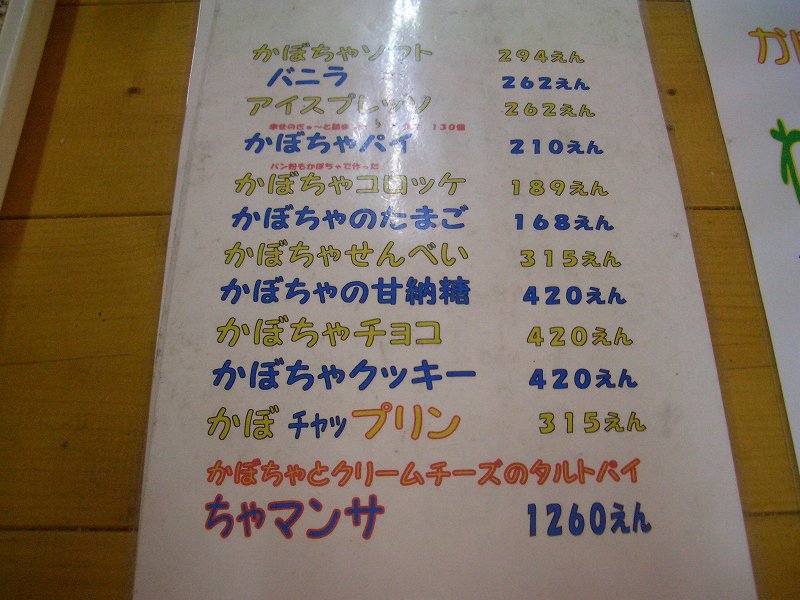 かぼちゃソフト 294えん
バニラ 262えん
アイスプレッソ 262えん
幸せのぎゅ〜と詰 130個
かぼちゃパイ 210えん
パン粉もかぼちゃで作った
かぼちゃコロッケ 189えん
かぼちゃのたまご 168えん
かぼちゃせんべい 315えん
かぼちゃの甘納糖 420えん
かぼちゃチョコ 420えん
かぼちゃクッキー 420えん
かぼチャップリン 315えん
かぼちゃとクリームチーズのタルトパイ
ちゃマンサ 1260えん